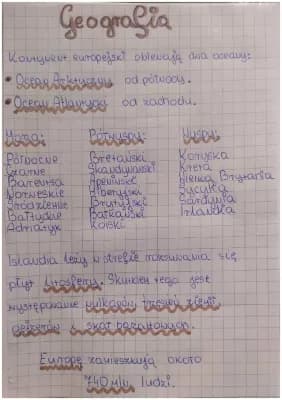 Geografia
Kontynent europejski oblewają dwa oceany:
• Ocean Arktyczny od północy.
• Ocean Atlantycki od zachodu.
Morza: Półwyspy: Wyspy:
Północne Bretoński Korsyka
Czarne Skandynawski Kreta
Barentsa Apeniński Wielka Brytania
Norweskie Iberyjski Sycylia
Śródziemne Sardynia
Bałtyckie Bałkański Irlandia
Adriatyk Kolski
Islandia leży w strefie rozsuwania się
płyt litosfery. Skutkiem tego jest
występowanie wulkanów, trzęsień ziemi,
gejzerów i skał bazaltowych.
Europę zamieszkują około
740 mln ludzi.